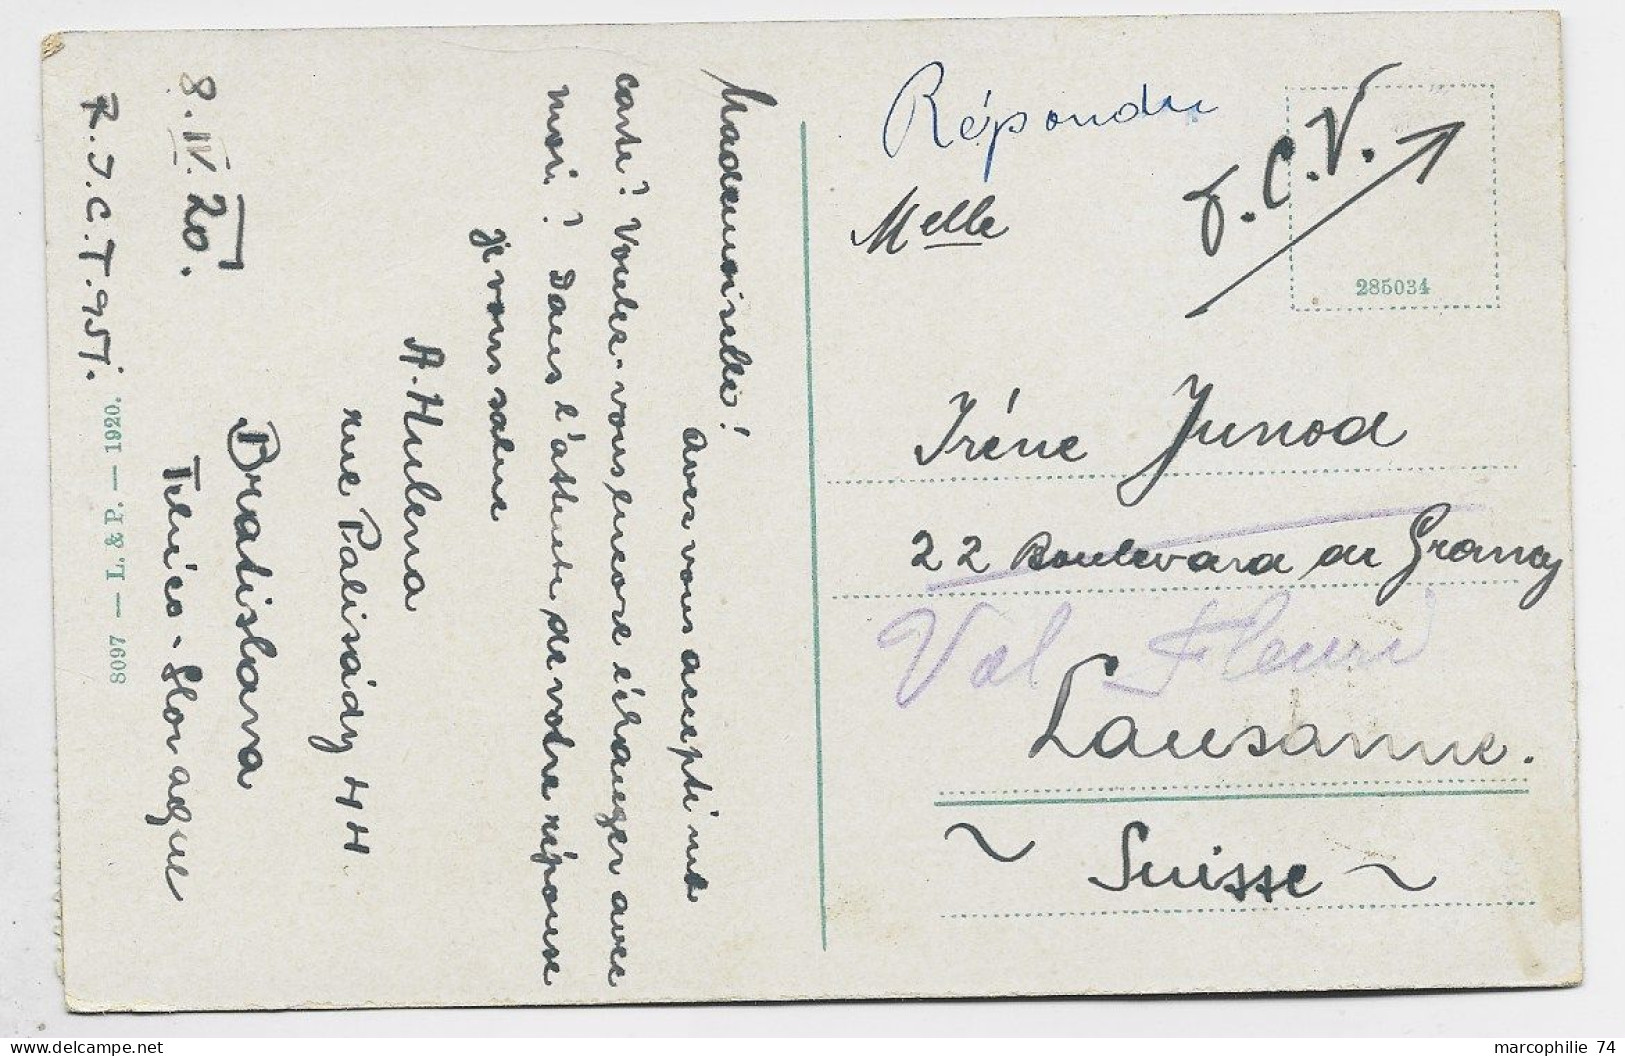 Mademoiselle!
avez vous accepti mes
carte? Voulez-vous encore échanger avec
moi? Dans l'attente de votre réponse
je vous salue
A. Hulena
rue Palisády 44
Bratislava
Tchéco-Slovaque
8. IV. 20.
R.J.C.T. 957.
8097 — L. & P. — 1920.
Répondu
T.C.V.
Melle
285034
Iréne Junod
22 Boulevard de Grancy
Val Fleuri
Lausanne.
~ Suisse ~
marcophilie 74